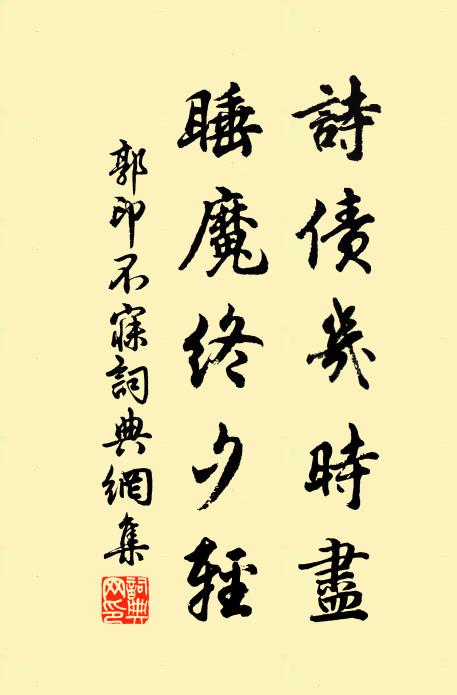 詩債幾時盡
睡魔終夕輕
郭印不寐詞典網集
詞典网印